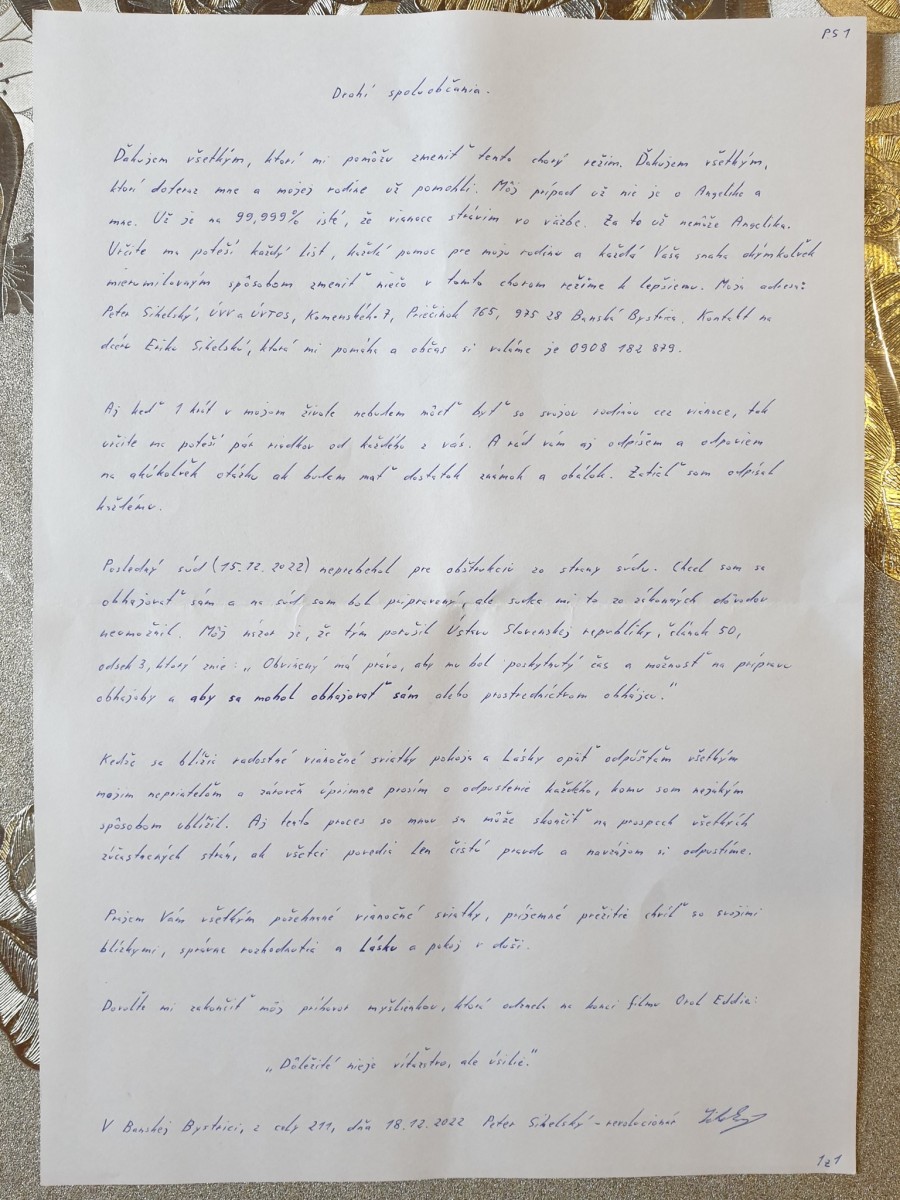 PS 1
Drahí spoluobčania.
Ďakujem všetkým, ktorí mi pomôžu zmeniť tento chorý režim. Ďakujem všetkým,
ktorí doteraz mne a mojej rodine už pomohli. Môj prípad už nie je o Angelike a
mne. Už je na 99,999% isté, že vianoce strávim vo väzbe. Za to už nemôže Angelika.
Určite ma poteší každý list, každá pomoc pre moju rodinu a každá Vaša snaha akýmkoľvek
mierumilovným spôsobom zmeniť niečo v tomto chorom režime k lepšiemu. Moja adresa:
Peter Sikelský, ÚVV a ÚVTOS, Komenského 7, Priečinok 165, 975 28 Banská Bystrica. Kontakt na
dcéru Eriku Sikelskú, ktorá mi pomáha a občas si voláme je 0908 182 879.
Aj keď 1 krát v mojom živote nebudem môcť byť so svojou rodinou cez vianoce, tak
určite ma poteší pár riadkov od každého z vás. A rád vám aj odpíšem a odpoviem
na akúkoľvek otázku ak budem mať dostatok známok a obálok. Zatiaľ som odpísal
každému.
Posledný súd (15.12.2022) neprebehol pre obštrukciu zo strany súdu. Chcel som sa
obhajovať sám a na súd som bol pripravený, ale sudca mi to zo zákonných dôvodov
neumožnil. Môj názor je, že tým porušil Ústavu Slovenskej republiky, článok 50,
odsek 3, ktorý znie: „Obvinený má právo, aby mu bol poskytnutý čas a možnosť na prípravu
obhajoby a aby sa mohol obhajovať sám alebo prostredníctvom obhájcu."
Kedže sa blížia radostné vianočné sviatky pokoja a Lásky opäť odpúšťam všetkým
mojim nepriateľom a zároveň úprimne prosím o odpustenie každého, komu som nejakým
spôsobom ublížil. Aj tento proces so mnou sa môže skončiť na prospech všetkých
zúčastnených strán, ak všetci povedia len čistú pravdu a navzájom si odpustíme.
Prajem Vám všetkým požehnané vianočné sviatky, príjemné prežitie chvíľ so svojimi
blízkymi, správne rozhodnutia a Lásku a pokoj v duši.
Dovoľte mi zakončiť môj príhovor myšlienkou, ktorá odznela na konci filmu Orol Eddie:
„Dôležité nieje víťazstvo, ale úsilie."
V Banskej Bystrici, z cely 211, dňa 18.12.2022 Peter Sikelský - revolucionár
1 z 1